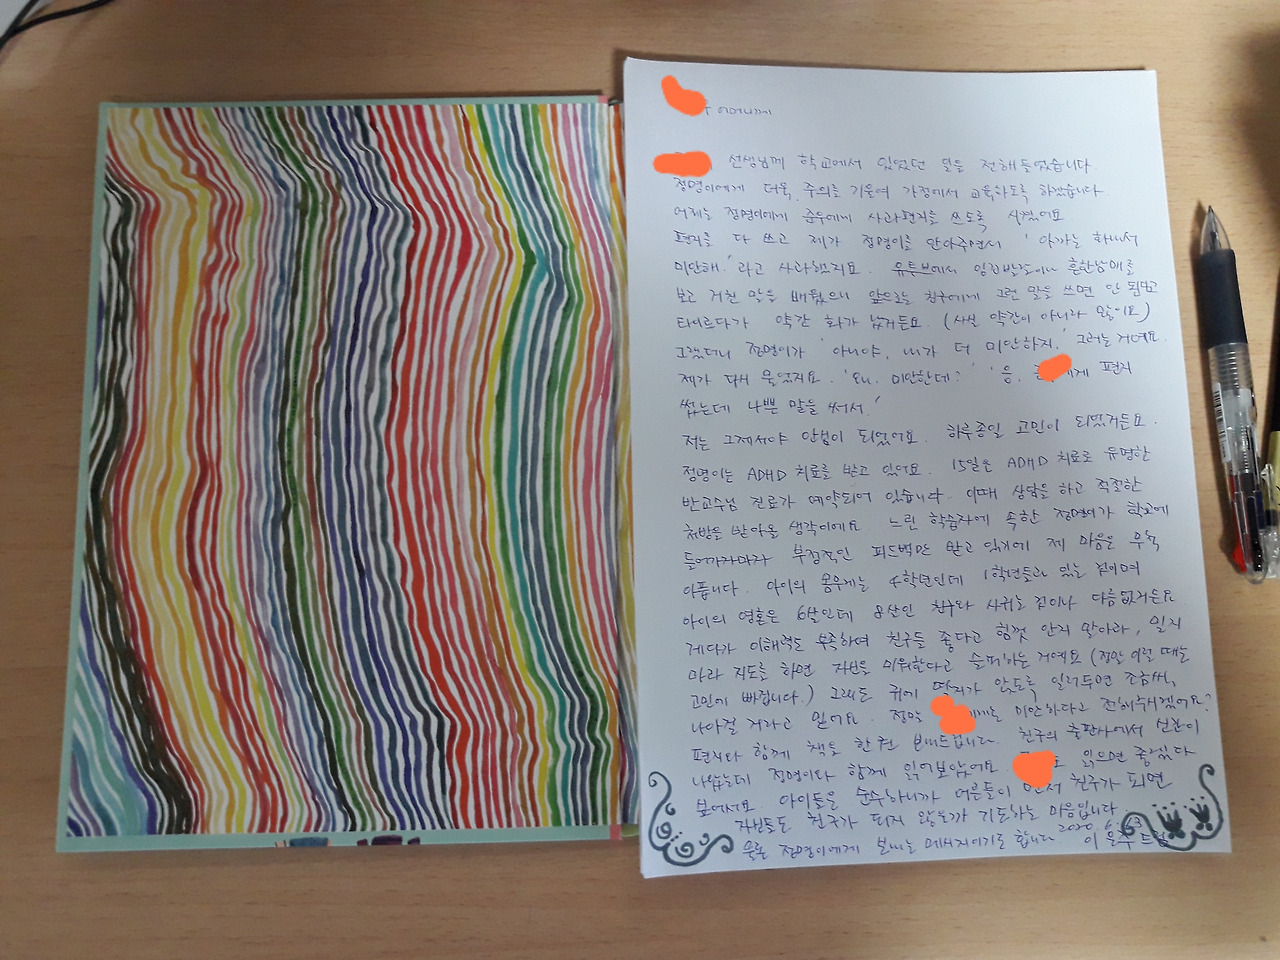 어머니께
선생님께 학교에서 있었던 일을 전해들었습니다.
정명이에게 더욱 주의를 기울여 가정에서 교육하도록 하겠습니다.
어제는 정명이에게 준우에게 사과편지를 쓰도록 시켰어요.
편지를 다 쓰고 제가 정명이를 안아주면서 '아까는 화내서
미안해.' 라고 사과했지요. 유튜브에서 흔한남매를
보고 거친 말을 배웠으니 앞으로는 친구에게 그런 말을 쓰면 안 된다고
타이르다가 약간 화가 났거든요. (사실 약간이 아니라 많이요)
그랬더니 정명이가 '아니야, 내가 더 미안하지.' 그러는거예요.
제가 다시 물었지요. '왜. 미안한데?' '응. 에게 편지
썼는데 나쁜 말을 써서.'
저는 그제서야 안심이 되었어요. 하루종일 고민이 되었거든요.
정명이는 ADHD 치료를 받고 있어요. 15일은 ADHD 치료로 유명한
반교수님 진료가 예약되어 있습니다. 이때 상담을 하고 적절한
처방을 받아올 생각이에요. 느린 학습자에 속한 정명이가 학교에
들어가자마자 부정적인 피드백만 받고 있기에 제 마음은 무척
아픕니다. 아이의 몸무게는 4학년인데 1학년들과 있는 셈이며
아이의 영혼은 6살인데 8살인 친구와 사귀는 셈이나 다름없거든요
게다가 이해력도 부족하여 친구들 좋다고 힘껏 안지 말아라, 밀지
마라 지도를 하면 자신을 미워한다고 슬퍼하는 거예요 (정말 이럴 때는
고민에 빠집니다.) 그래도 귀에 딱지가 앉도록 일러두면 조금씩,
나아질 거라고 믿어요. 정말 에게는 미안하다고 전해주시겠어요?
편지와 함께 책을 한 권 보내드립니다. 친구의 출판사에서 신간이
나왔는데 정명이와 함께 읽어보았어요. 도 읽으면 좋겠다
보여서요. 아이들은 순수하니까 어른들이 먼저 친구가 되면
자녀들도 친구가 되지 않는가 기도하는 마음입니다.
물론 정명이에게 보내는 메시지이기도 합니다 2020. 6. 3 이 드림